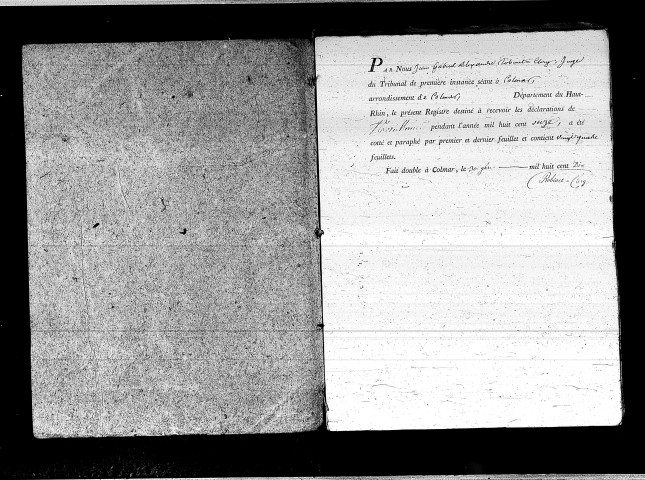 PAR Nous Jean Gabriel Alexandre Juge
du Tribunal de première instance séant à Colmar,
arrondissement de Colmar, Département du Haut-
Rhin, le présent Registre destiné à recevoir les déclarations de
pendant l'année mil huit cent onze, a été
cotté et paraphé par premier et dernier feuillet et contient vingt quatre
feuillets.
Fait double à Colmar, le mil huit cent Dix